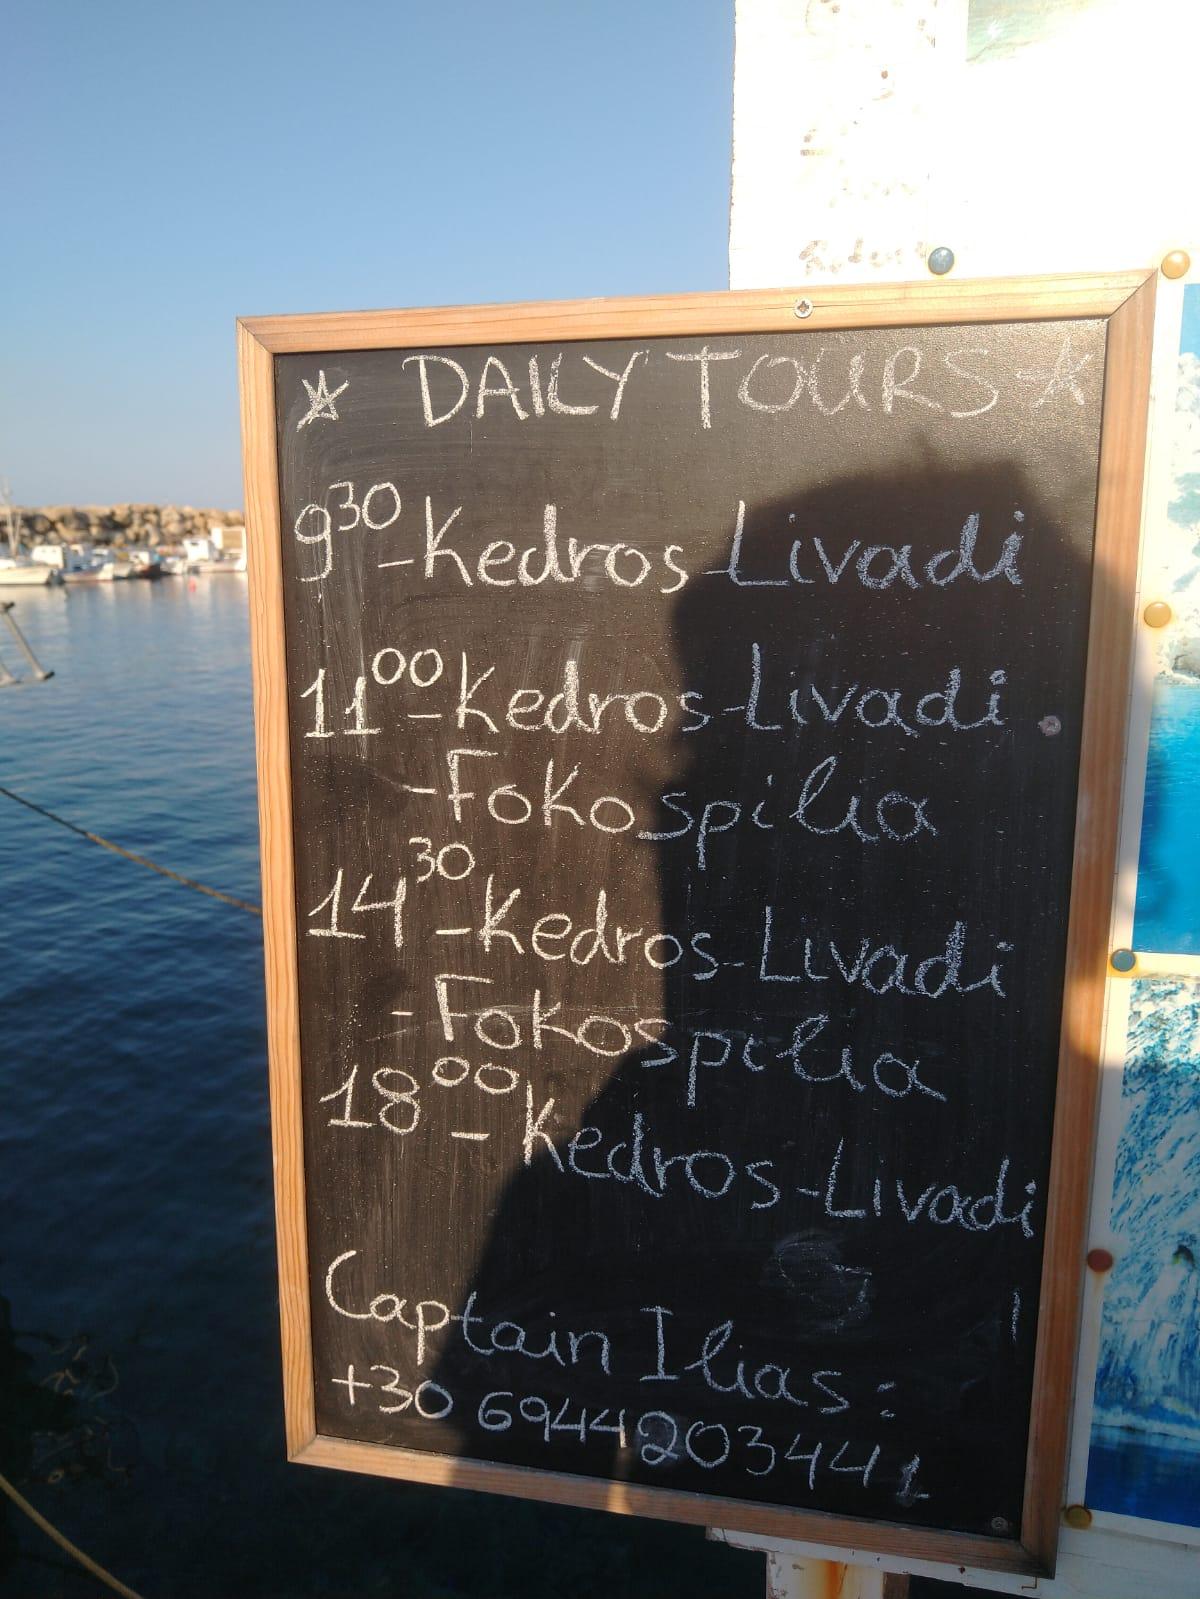 ☆ DAILY TOURS ☆
9³⁰ - Kedros - Livadi
11⁰⁰ - Kedros - Livadi
- Fokospilia
14³⁰ - Kedros - Livadi
- Fokospilia
18⁰⁰ - Kedros - Livadi
Captain Ilias:
+30 6944203441